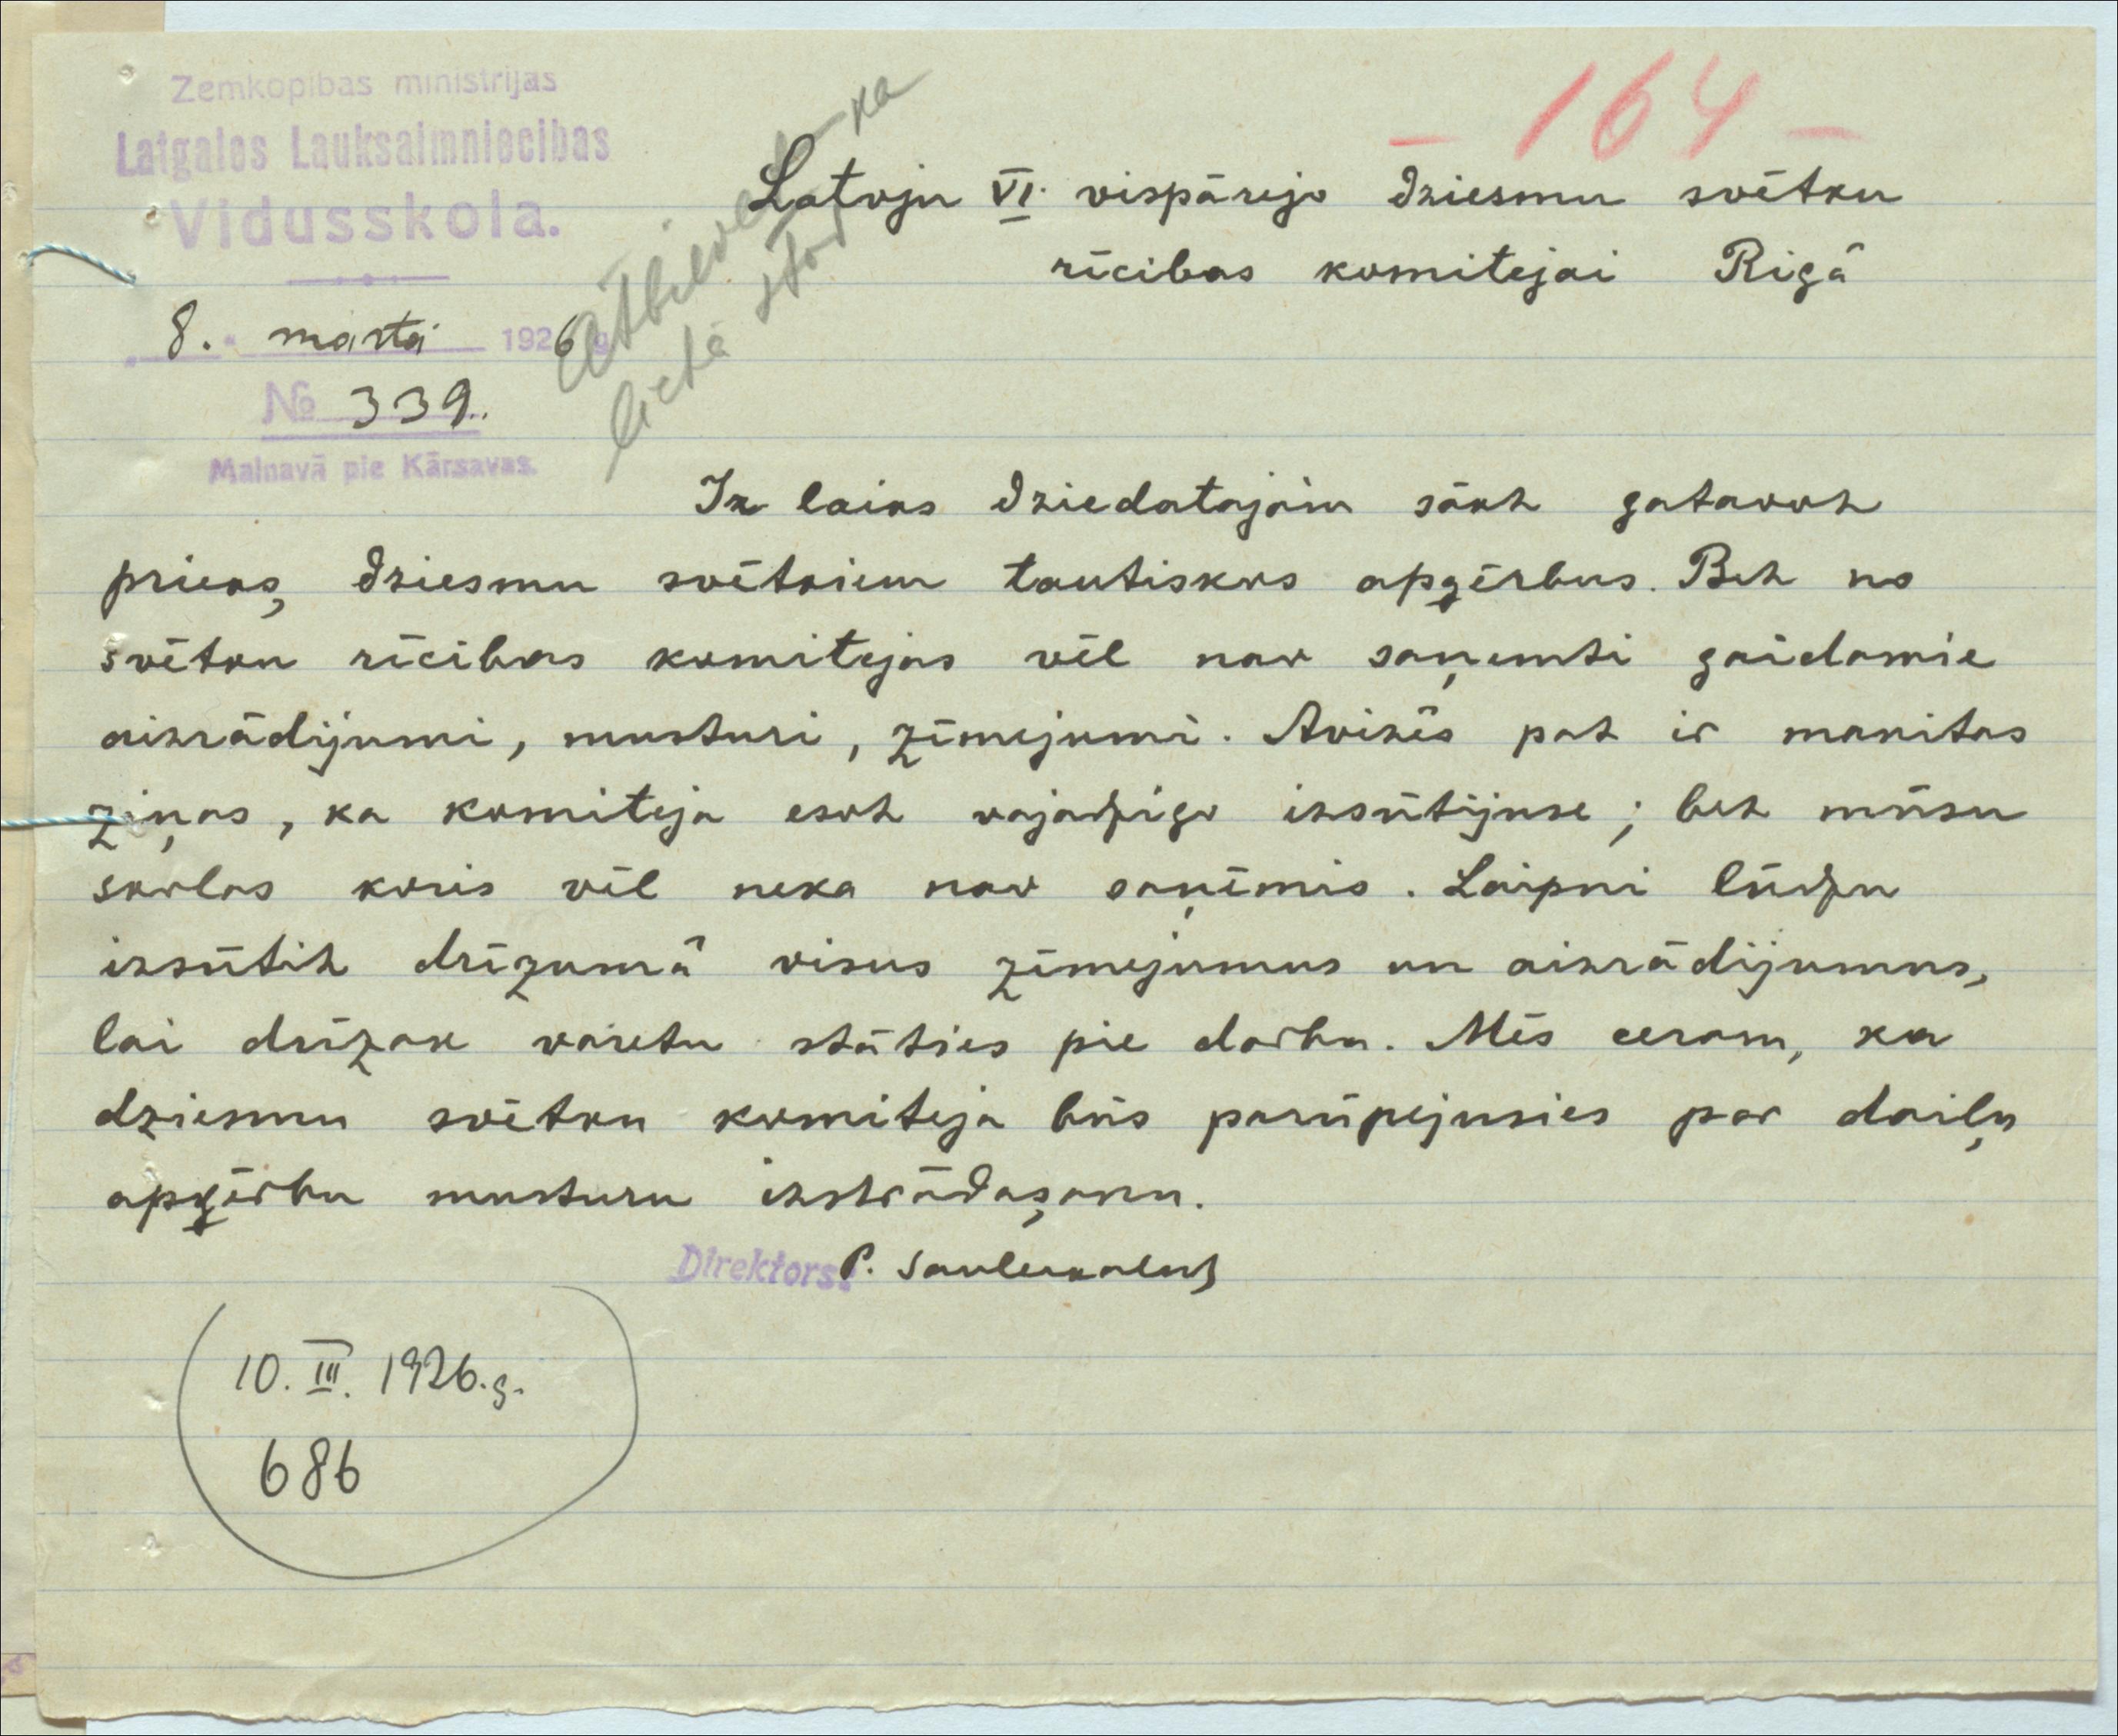 Zemkopibas ministrijas
Latgales Lauksaimniecibas
Vidusskola.
8. martā 1926 g.
№ 339.
Malnavā pie Kārsavas.
- 164 -
Latvju VI. vispārejo dziesmu svētku
rīcibas komitejai Rigā
Ir laiks dziedatajām sākt gatavot
priekš dziesmu svētkiem tautiskos apģērbus. Bet no
svētku rīcibas komitejas vēl nav saņemti gaidamie
aizrādijumi, musturi, zīmejumi. Avizēs pat ir manitas
ziņas, ka komiteja esot vajadzigo izsūtijuse; bet mūsu
skolas koris vēl neka nav saņēmis. Laipni lūdzu
izsūtit drīzumā visus zīmejumus un aizrādijumus,
lai drīzak varetu stāties pie darba. Mēs ceram, ka
dziesmu svētku komiteja būs parūpejusies par daiļu
apģērbu musturu izstrādašanu.
Direktors: P. Sauleskalns
10. III. 1926. g.
686